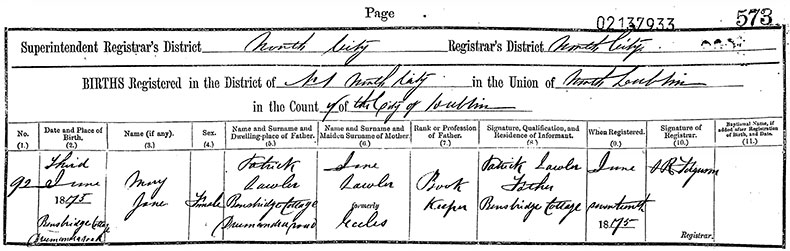 Page 02137933 573
Superintendent Registrar's District North City Registrar's District North City
BIRTHS Registered in the District of No 1 North City in the Union of North Dublin
in the Count y of the City of Dublin
No. Date and Place of Birth. Name (if any). Sex. Name and Surname and Dwelling-place of Father. Name and Surname and Maiden Surname of Mother. Rank or Profession of Father. Signature, Qualification, and Residence of Informant. When Registered. Signature of Registrar. Baptismal Name, if added after Registration of Birth, and Date.
(1.) (2.) (3.) (4.) (5.) (6.) (7.) (8.) (9.) (10.) (11.)
Third Patrick Jane Patrick Lawler June
92 June Mary Lawler Lawler Book Father
1875 Jane Female Bonsbridge Cottage formerly Keeper Bonsbridge Cottage seventeenth
Bonsbridge Cottage Eccles 1875 Registrar.